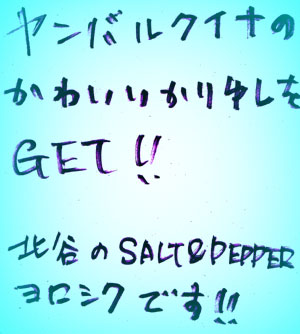 ヤンバルクイナの
かわいいかりゆしを
GET!!
北谷のSALT&PEPPER
ヨロシクです!!